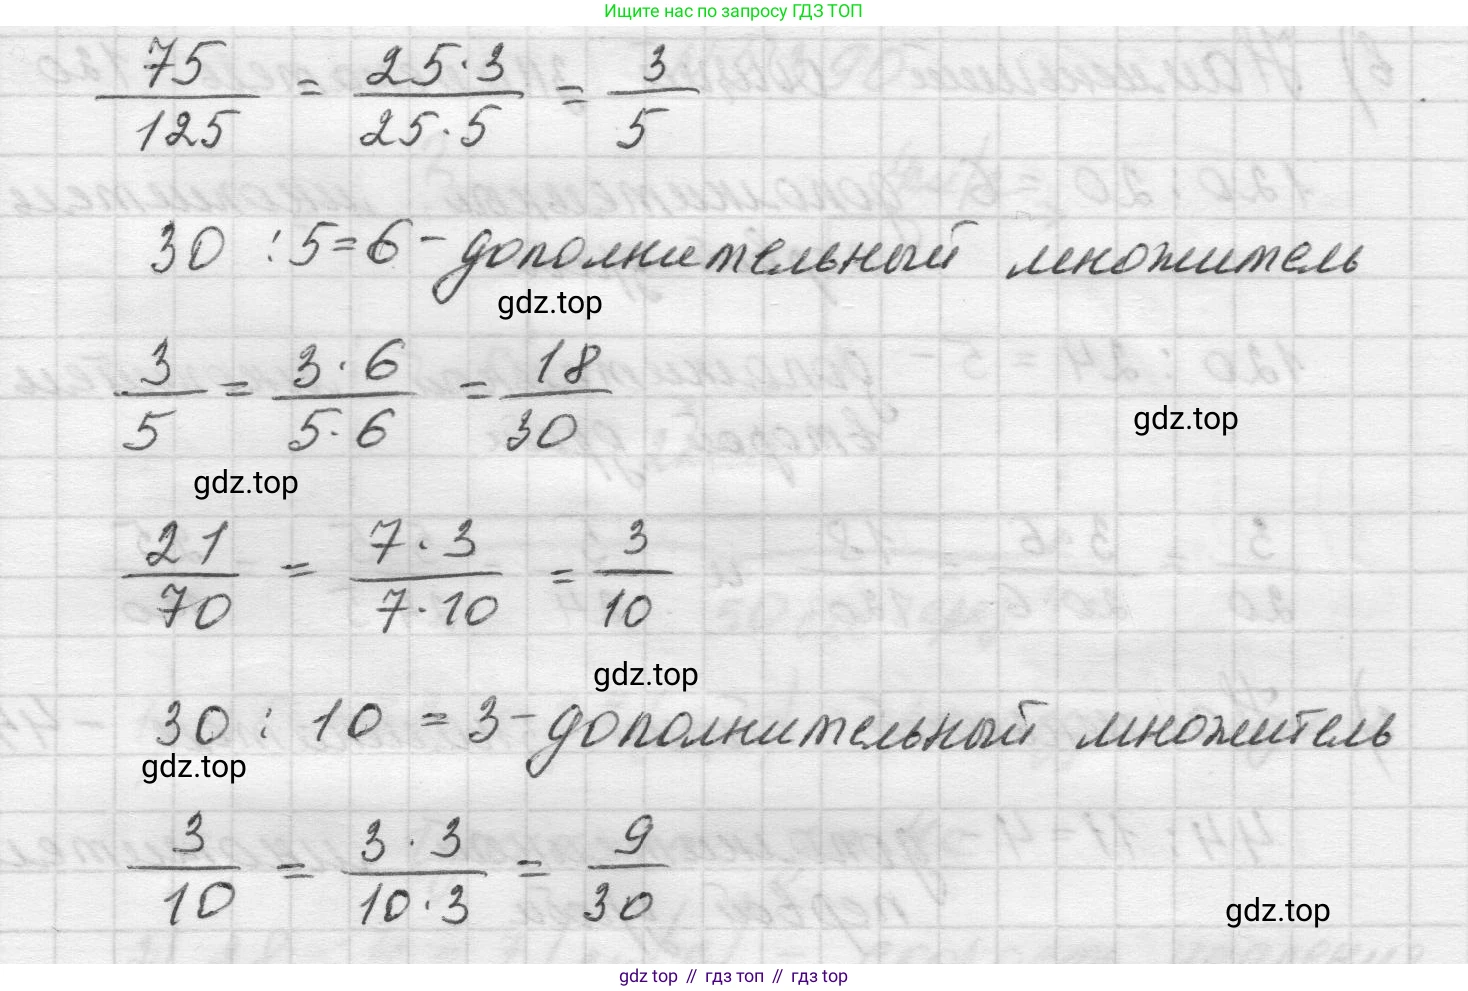 Ищите нас по запросу ГДЗ ТОП
75/125 = 25·3/25·5 = 3/5
30 : 5 = 6 - дополнительный множитель
gdz.top
3/5 = 3·6/5·6 = 18/30
gdz.top
gdz.top
21/70 = 7·3/7·10 = 3/10
gdz.top
30 : 10 = 3 - дополнительный множитель
gdz.top
3/10 = 3·3/10·3 = 9/30
gdz.top
gdz top // гдз топ // гдз top